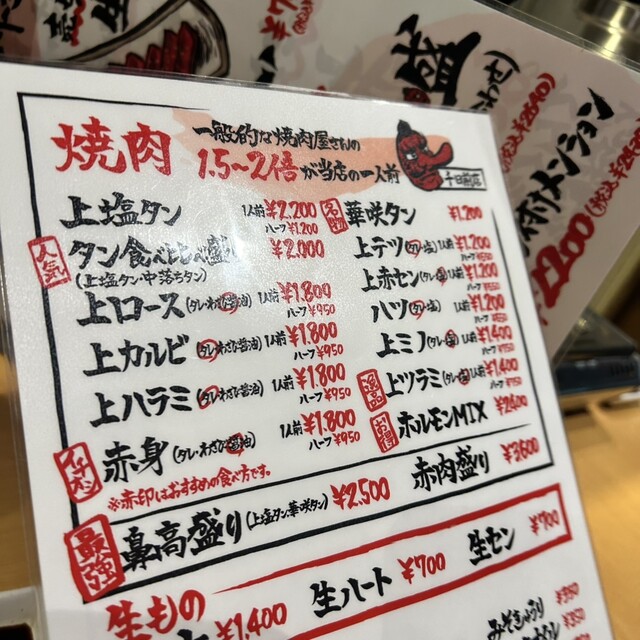 焼肉
一般的な焼肉屋さんの
1.5~2倍が当店の一人前
十日前店
上塩タン 1人前¥2,200
ハーフ¥1,200
人気
タン食べ比べ盛り ¥2,000
(上塩タン・中落ちタン)
上ロース(タレ・わさび醤油) 1人前¥1,800
ハーフ¥950
上カルビ(タレ・わさび醤油) 1人前¥1,800
ハーフ¥950
上ハラミ(タレ・わさび醤油) 1人前¥1,800
ハーフ¥950
イチオシ
赤身(タレ・わさび醤油) 1人前¥1,800
ハーフ¥950
※赤印はおすすめの食べ方です。
名物
華咲タン ¥1,200
上テツ(タレ・塩) 1人前¥1,200
上赤セン(タレ・塩) 1人前¥1,200
ハツ(タレ・塩) 1人前¥1,200
上ミノ(タレ・塩) 1人前¥1,400
上ツラミ(タレ・塩) 1人前¥1,400
お得
ホルモンMIX ¥2,400
赤肉盛り ¥3,600
最強
鼻高盛り(上塩タン・華咲タン) ¥2,500
生もの
¥1,400
生ハート ¥700
生セン ¥700
盛